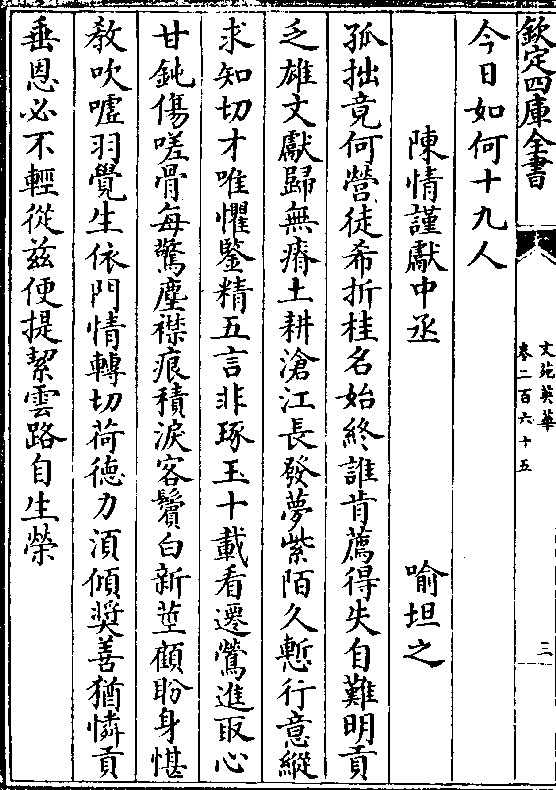 欽定四庫全書
文苑英華
卷二百六十五
三
今日如何十九人
陳情謹獻中丞 喻坦之
孤拙竟何營徒希折桂名始終誰肯薦得失自難明貢
乏雄文獻歸無瘠土耕滄江長發夢紫陌久慙行意縱
求知切才唯懼鑒精五言非琢玉十載看遷鶯進取心
甘鈍傷嗟骨每驚塵襟痕積淚客鬢白新莖顧盼身堪
教吹噓羽覺生依門情轉切荷德力須傾奨善猶憐貢
垂恩必不輕從兹便提挈雲路自生榮